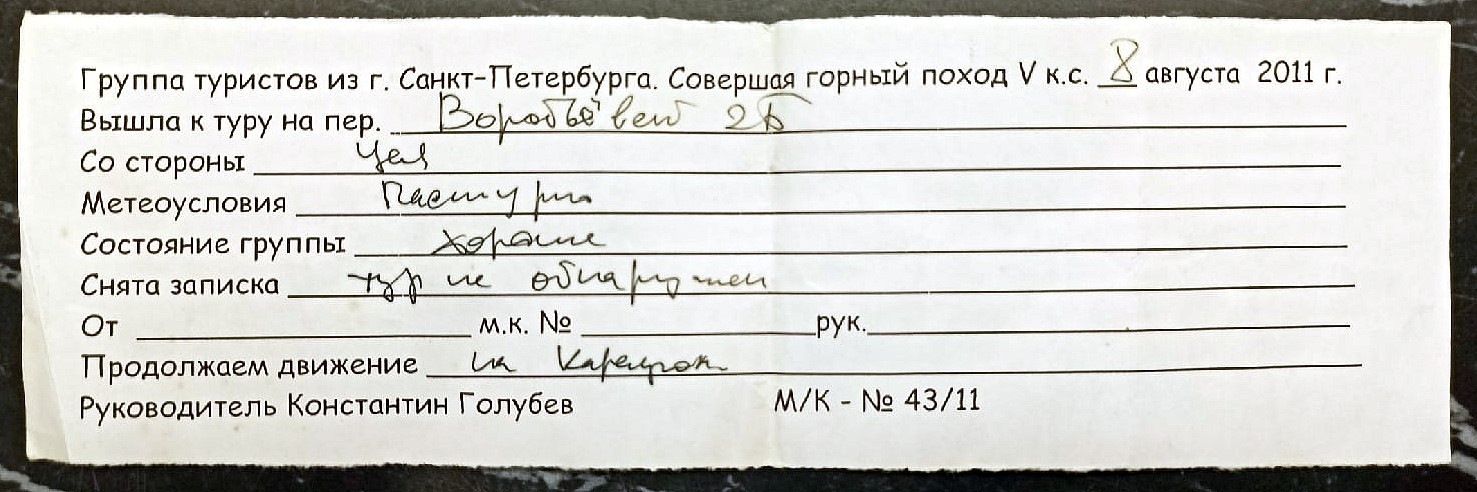 Группа туристов из г. Санкт-Петербурга. Совершая горный поход V к.с. 8 августа 2011 г.
Вышла к туру на пер. Воробьёвей 2Б
Со стороны Цея
Метеоусловия Пасмурно
Состояние группы хорошее
Снята записка тур не обнаружен
От м.к. № рук.
Продолжаем движение на
Руководитель Константин Голубев М/К - № 43/11